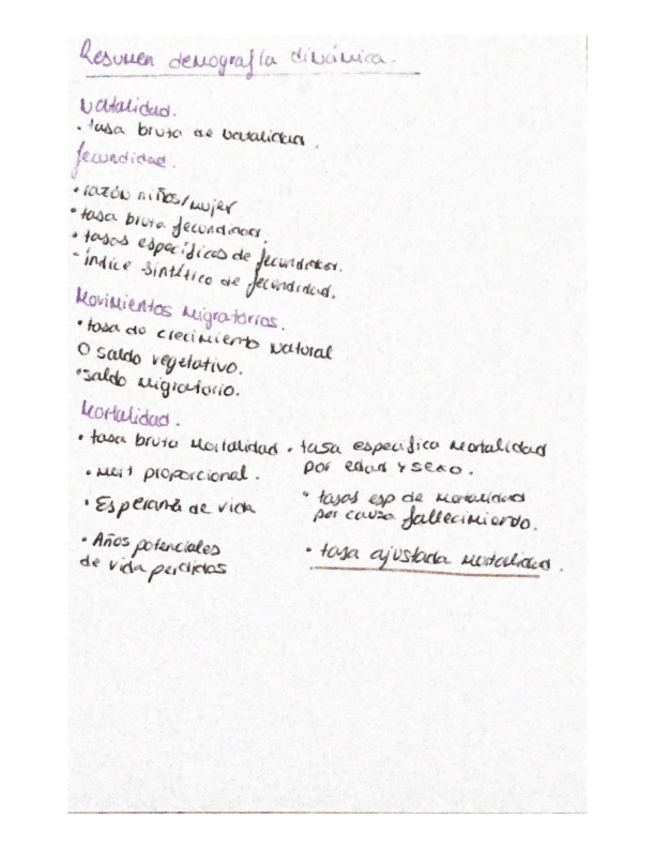 Resumen demografía dinámica.
Natalidad.
• tasa bruta de natalidad.
fecundidad.
• razón niños/mujer
• tasa bruta fecundidad.
• tasas específicas de fecundidad.
- índice sintético de fecundidad.
Movimientos migratorios.
• tasa de crecimiento natural
O saldo vegetativo.
• saldo migratorio.
Mortalidad.
• tasa bruta mortalidad
• Mort proporcional.
• Esperanza de vida
• Años potenciales
de vida perdidos
• tasa específica mortalidad
por edad y sexo.
• tasas esp de mortalidad
por causa fallecimiento.
• tasa ajustada mortalidad.